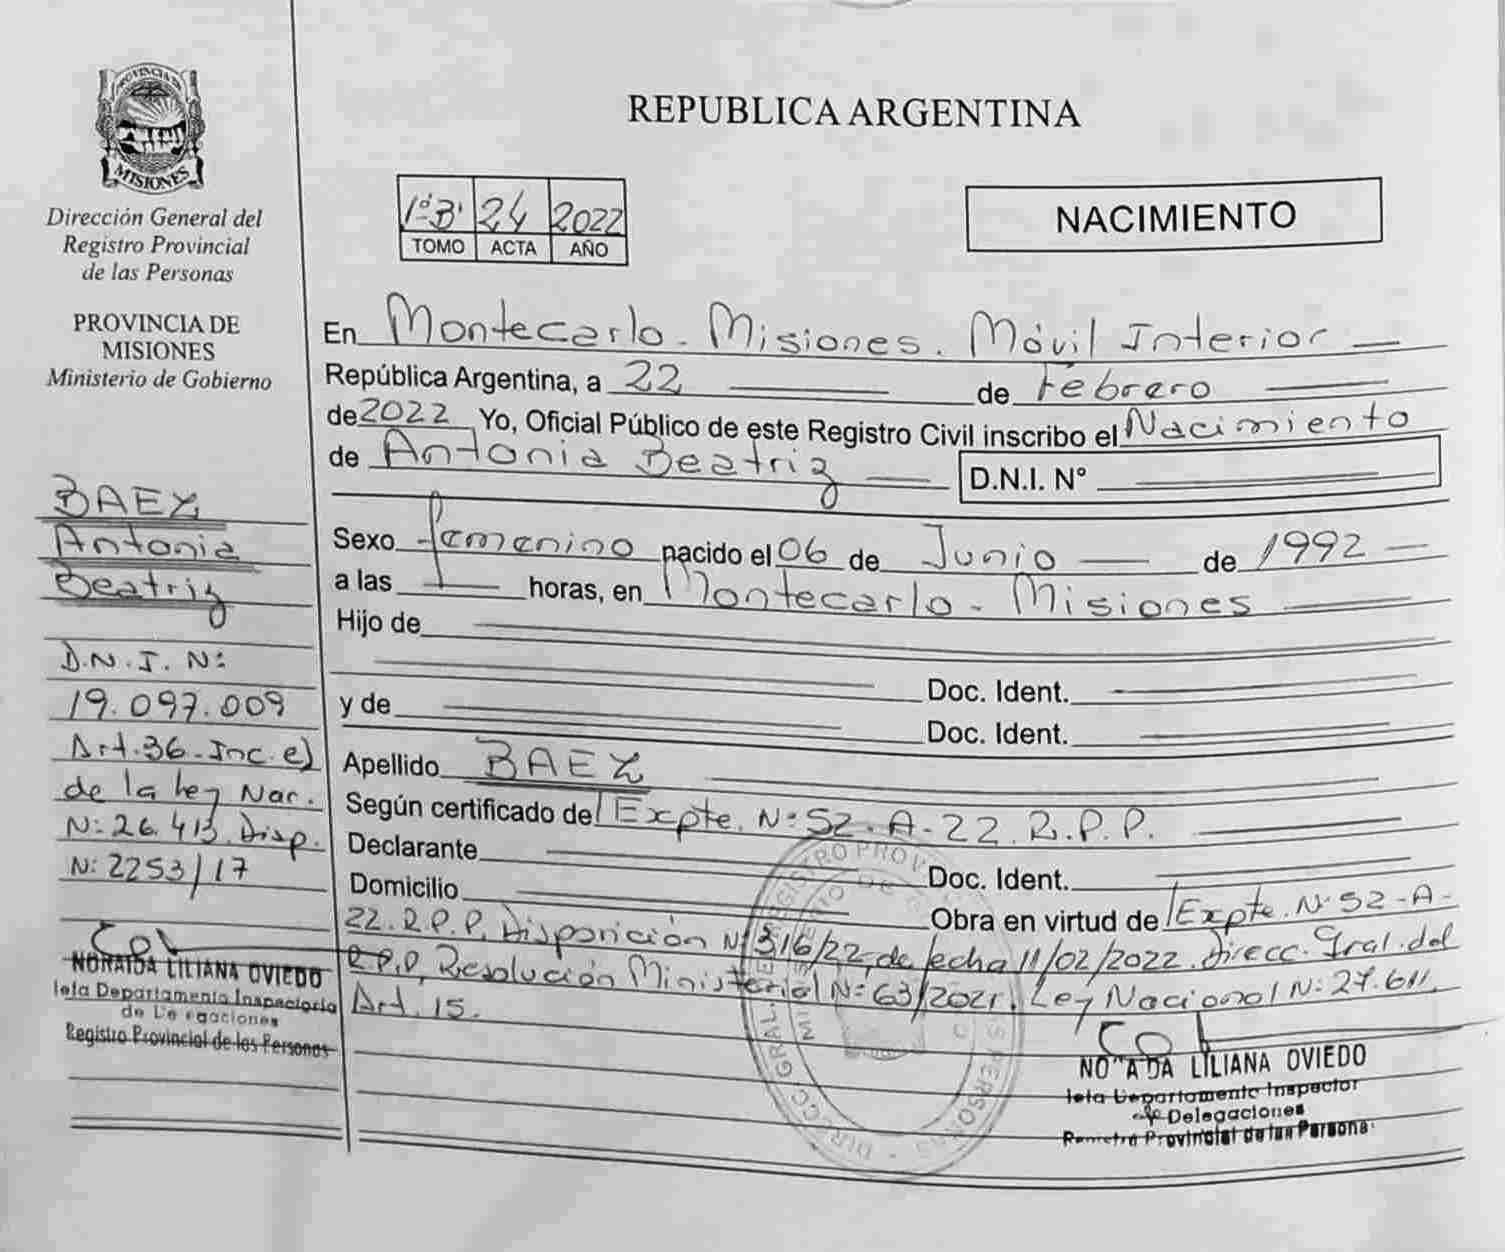 PROVINCIA DE
MISIONES
Dirección General del
Registro Provincial
de las Personas
PROVINCIA DE
MISIONES
Ministerio de Gobierno
BAEZ
Antonia
Beatriz
D.N.I. Nº
19.097.009
Art. 36 - Inc. e)
de la Ley Nac.
Nº 26.413. Disp.
Nº 2253/17
NORAIDA LILIANA OVIEDO
Jefa Departamento Inspectoria
de Delegaciones
Registro Provincial de las Personas
REPUBLICA ARGENTINA
1º B' 24 2022
TOMO ACTA AÑO
NACIMIENTO
En Montecarlo - Misiones. Móvil Interior
República Argentina, a 22 de Febrero
de 2022 Yo, Oficial Público de este Registro Civil inscribo el Nacimiento
de Antonia Beatriz D.N.I. N°
Sexo femenino nacido el 06 de Junio de 1992
a las horas, en Montecarlo - Misiones
Hijo de
Doc. Ident.
y de
Doc. Ident.
Apellido BAEZ
Según certificado del Expte. Nº 52-A-22 R.P.P.
Declarante Doc. Ident.
Domicilio Obra en virtud de Expte. Nº 52-A-
22. R.P.P. Disposición Nº 316/22, de fecha 11/02/2022. Direcc. Gral. del
R.P.P, Resolución Ministerial Nº 63/2021. Ley Nacional Nº 27.611.
Art. 15.
NO A DA LILIANA OVIEDO
Jefa Departamento Inspector
de Delegaciones
Registro Provincial de las Persona